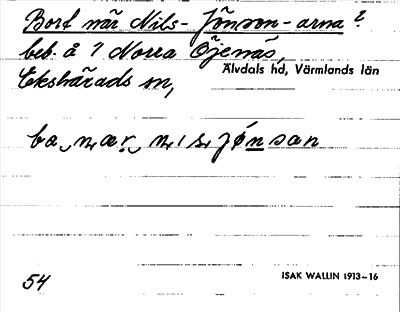 Bort när Nils-Jönson-arna?
beb. å ? Norra Öjenäs,
Ekshärads sn, Älvdals hd, Värmlands län
ba nar nis jónsan
54 ISAK WALLIN 1913-16